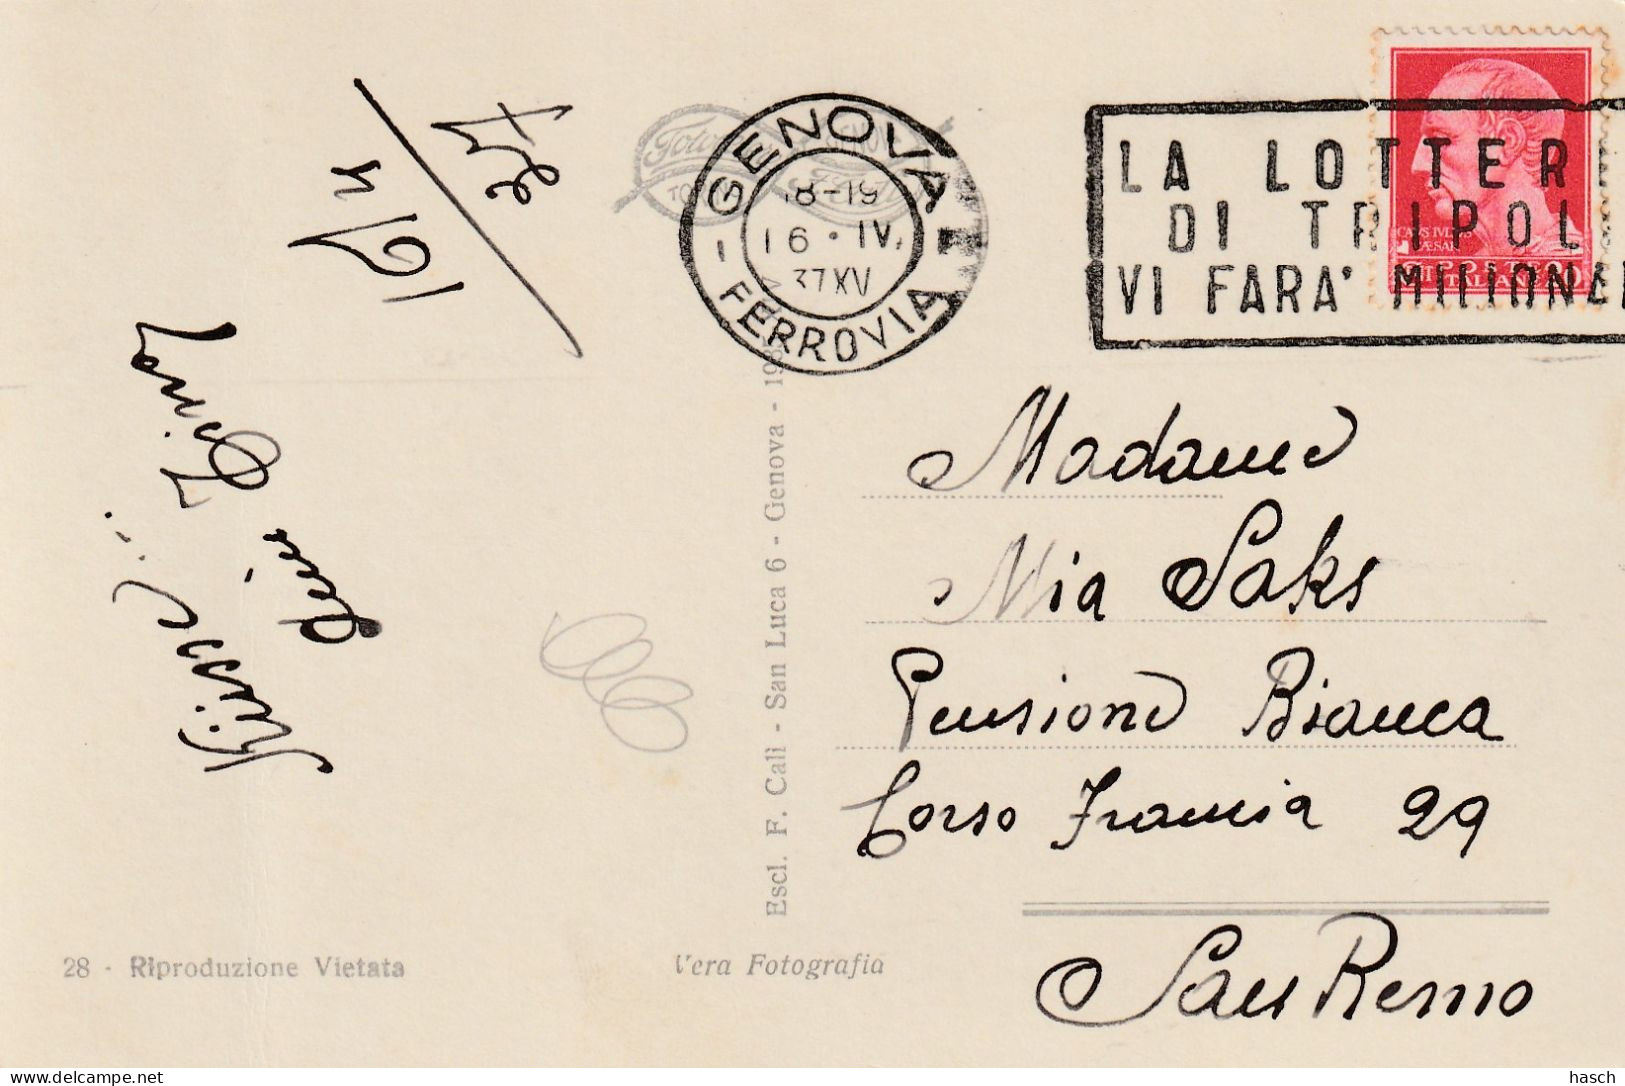 16/4
37
Küsse
Dein
GENOVA
FERROVIA
18-19
16 · IV.
37 XV
LA LOTTER
DI TRIPOL
VI FARA' MILIONA
CAIVS IVLIVS
CAESAR
POSTE
ITALIANE
Madame
Mia Saks
Pensione Bianca
Corso Francia 29
San Remo
Escl. F. Calì - San Luca 6 - Genova - 193
28 - Riproduzione Vietata
Vera Fotografia
hasch